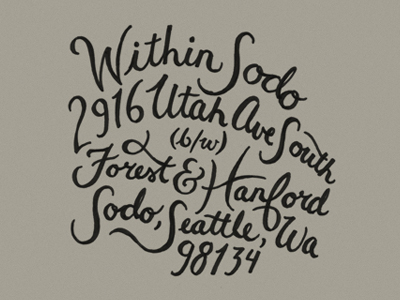 Within Sodo
2916 Utah Ave South
(b/w)
Forest & Hanford
Sodo, Seattle, Wa
98134